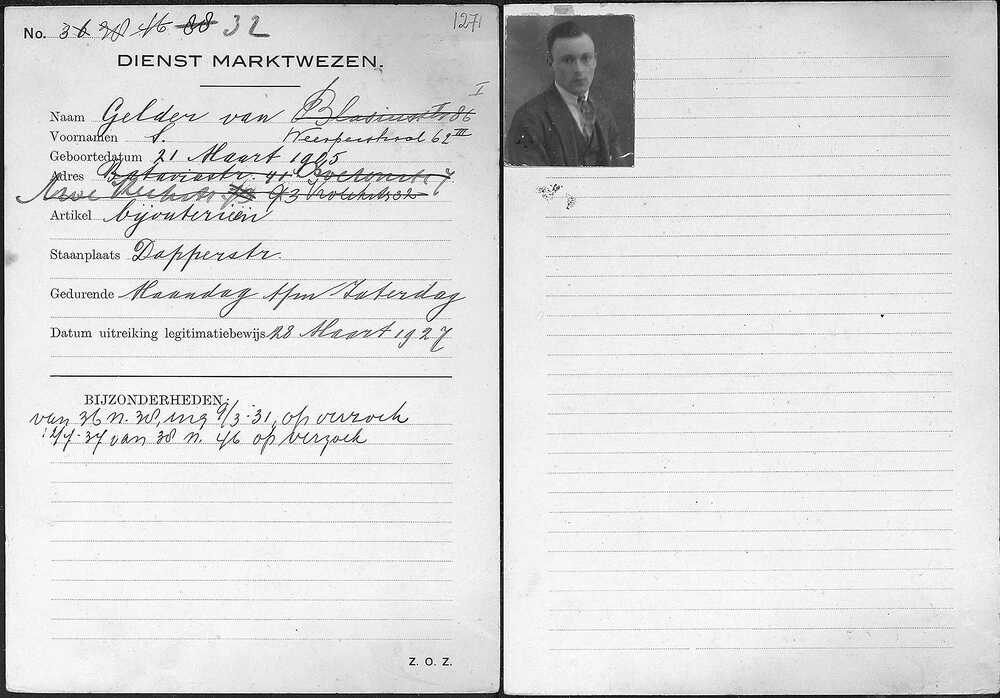 No. 36 38 46 88 32 1271
DIENST MARKTWEZEN.
I
Naam Gelder van Blasiusstr 86
Voornamen S. Weesperstraat 62 III
Geboortedatum 21 Maart 1905
Adres Bataviastr. 41 7
93 32
Artikel bijouterieën
Staanplaats Dapperstr.
Gedurende Maandag t/m Zaterdag
Datum uitreiking legitimatiebewijs 28 Maart 1927
BIJZONDERHEDEN:
van 36 n. 38, ing 9/3-31, op verzoek
37 van 38 n. 46 op verzoek
Z. O. Z.